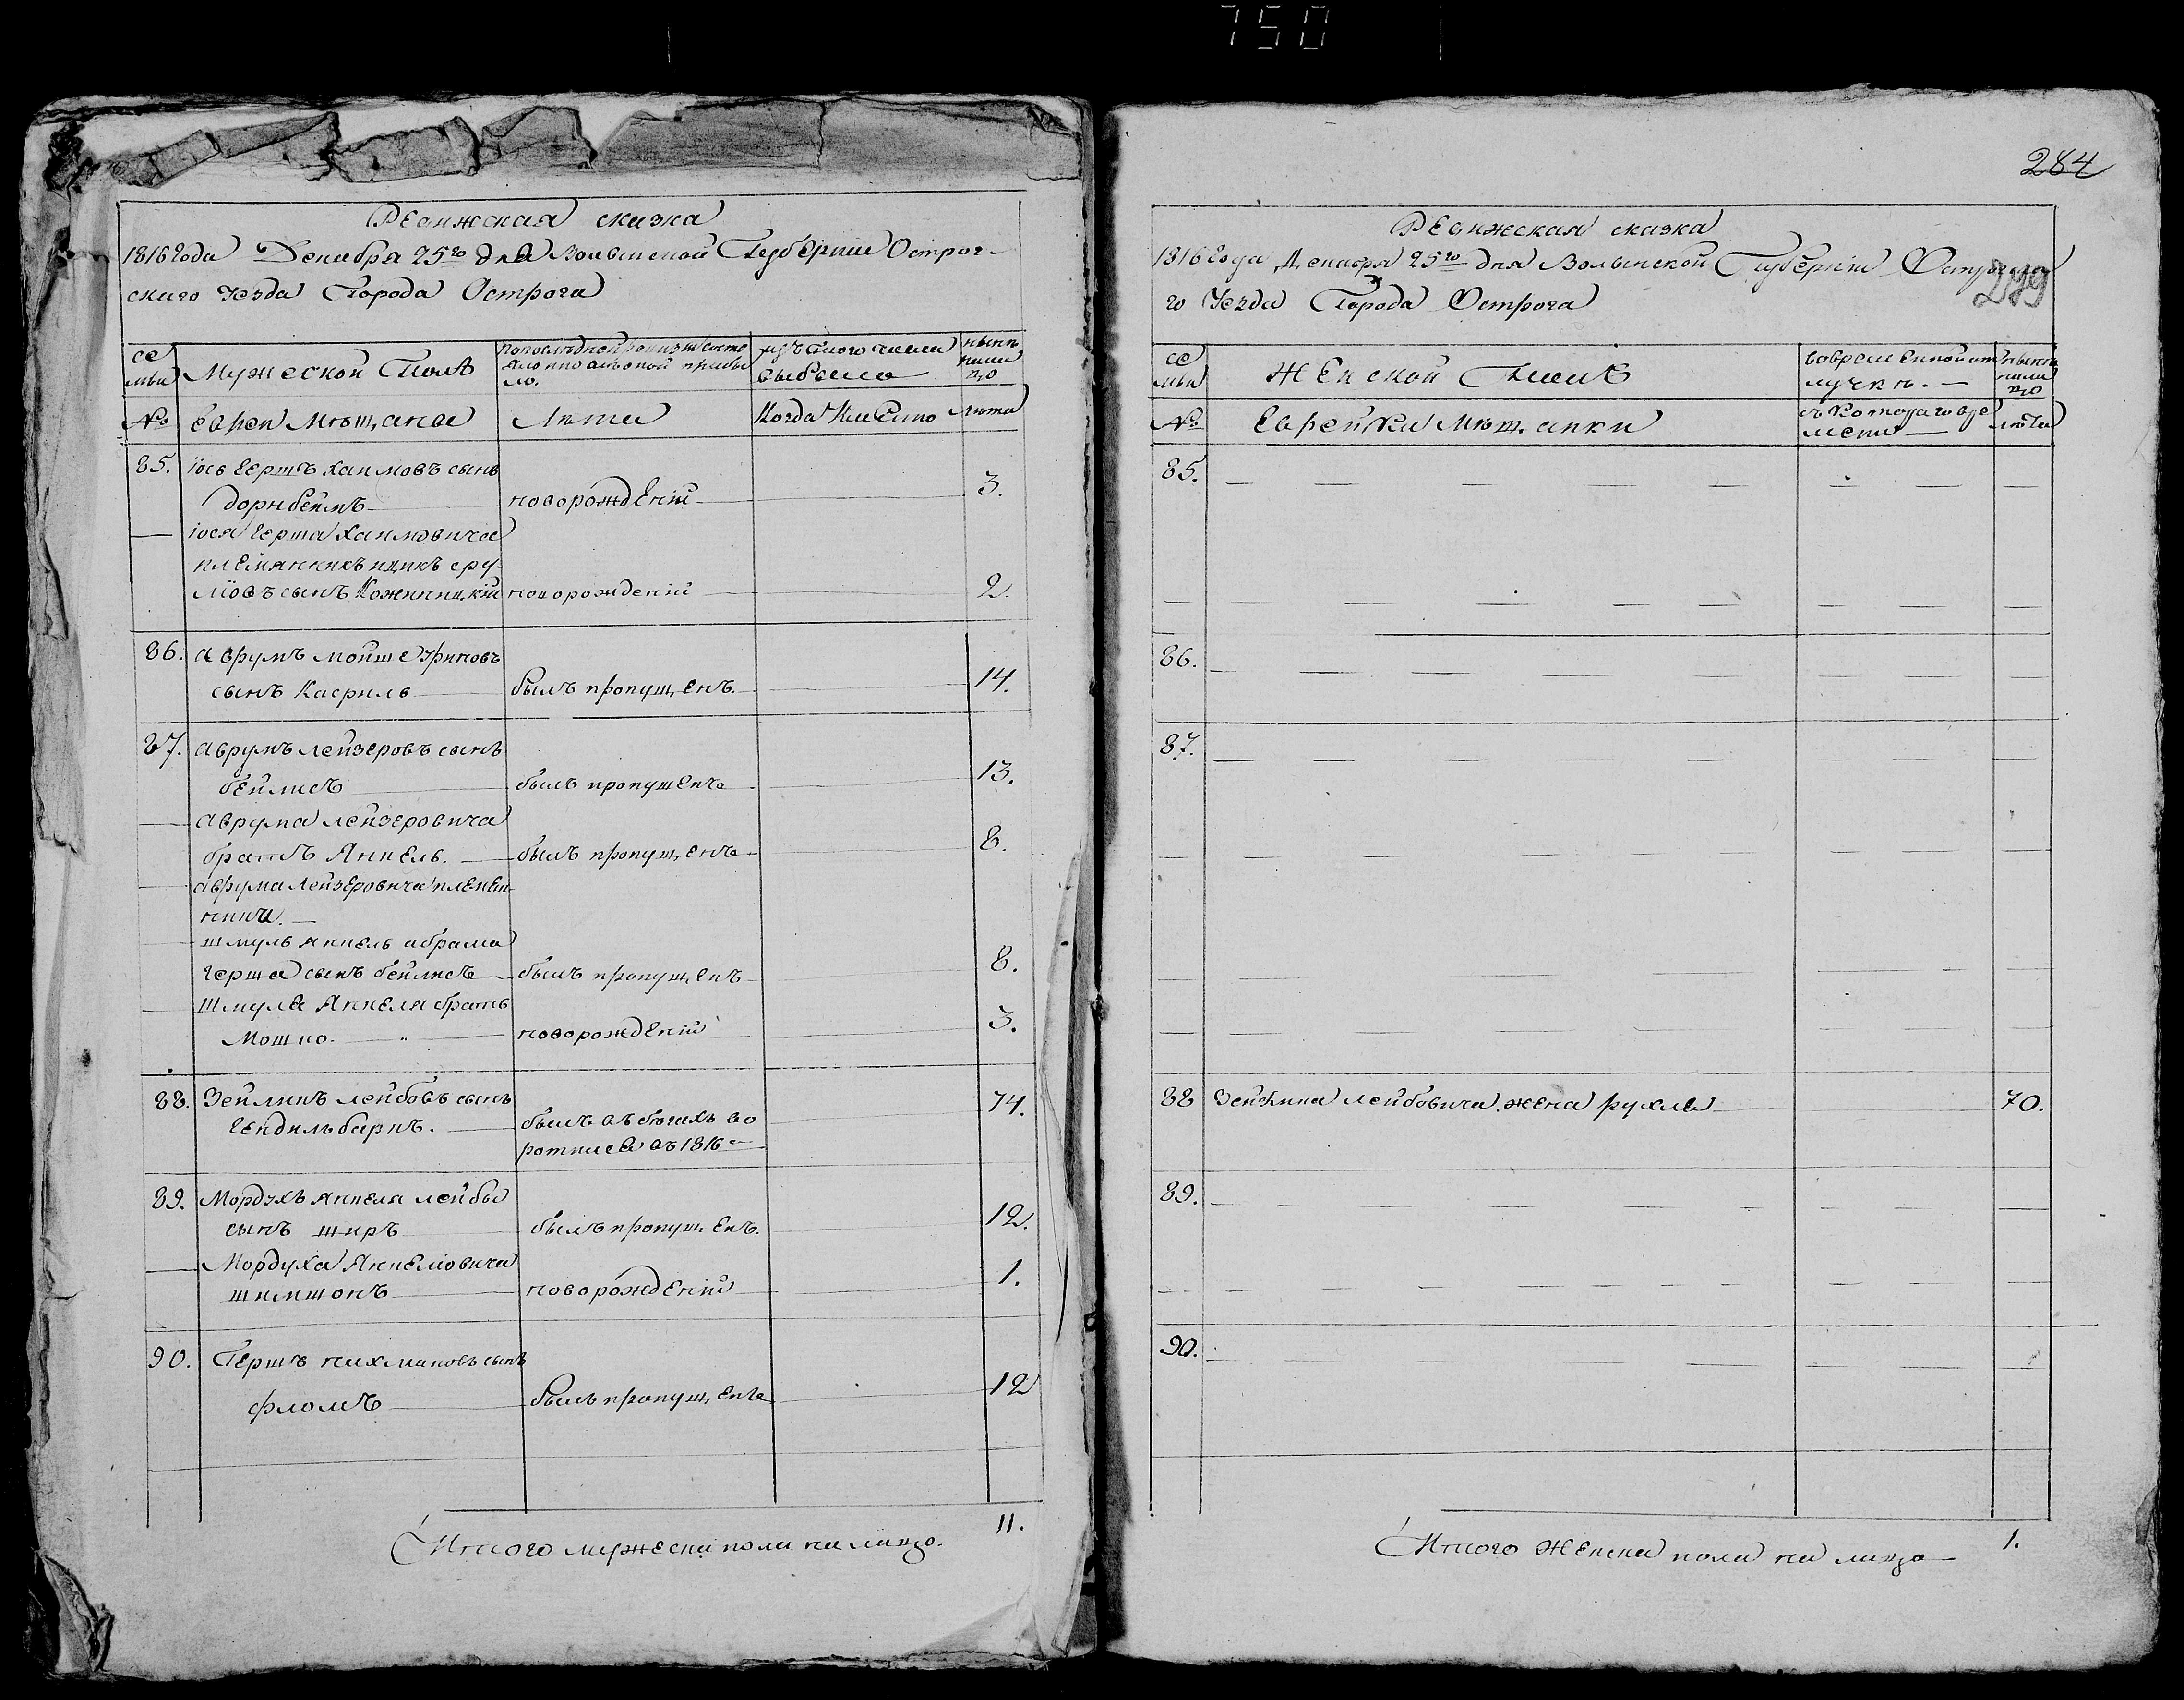 750
Ревижская сказка
1816 года Декабря 25го дня Волынской Губернии Острог-
скаго уезда Города Острога
се
мьи
Мужеской Полъ
По последней ревизии состо
яло и по оной прибы
ло.
изъ того числа
выбыло
ныне
на ли
цо
№
Евреи Мѣщане
Лѣта
Когда Именно
Лѣта
85. іось Гершъ Хаимовъ сынъ
дорнбеймъ новорожденій 3.
іося Герша Хаимовича
племянникъ ицикъ сру-
лiовъ сынъ Кожницкій новорожденій 2.
86. Аврумъ мойше уриновъ
сынъ Касриль былъ пропущенъ. 14.
87. Аврумъ лейзеровъ сынъ
бейлисъ былъ пропущенъ 13.
Аврума лейзеровича
братъ Янкель. былъ пропущенъ 8.
Аврума Лейзеровича племян-
ники.
шмуль янкель абрама
герша сынъ бейлисъ былъ пропущенъ 8.
Шмуля Янкеля братъ
Мошко. новорожденій 3.
88. Зейликъ лейбовъ сынъ 74.
Гендильбарнъ. былъ въ бегахъ во
ротился въ 1816
89. Мордухъ янкеля лейбы
сынъ широ былъ пропущенъ. 12.
Мордуха Янкелiовича
шимшонъ новорожденій 1.
90. Гершъ нахмановъ сынъ
фломъ былъ пропущенъ 12
Итого мужеска пола на лицо. 11.
284
279
Ревижская сказка
1816 года Декабря 25го дня Волынской Губерніи Острогска
го Уезда Города Острога
се
мьи
Женской Полъ
во временной от
лучке.
ныне
на ли
цо
№
Еврейки Мѣщанки
съ котораго вре
мени
лѣта
85.
86.
87.
88 Зейлика лейбовича жена рухля 70.
89.
90.
Итого Женска пола на лицо 1.